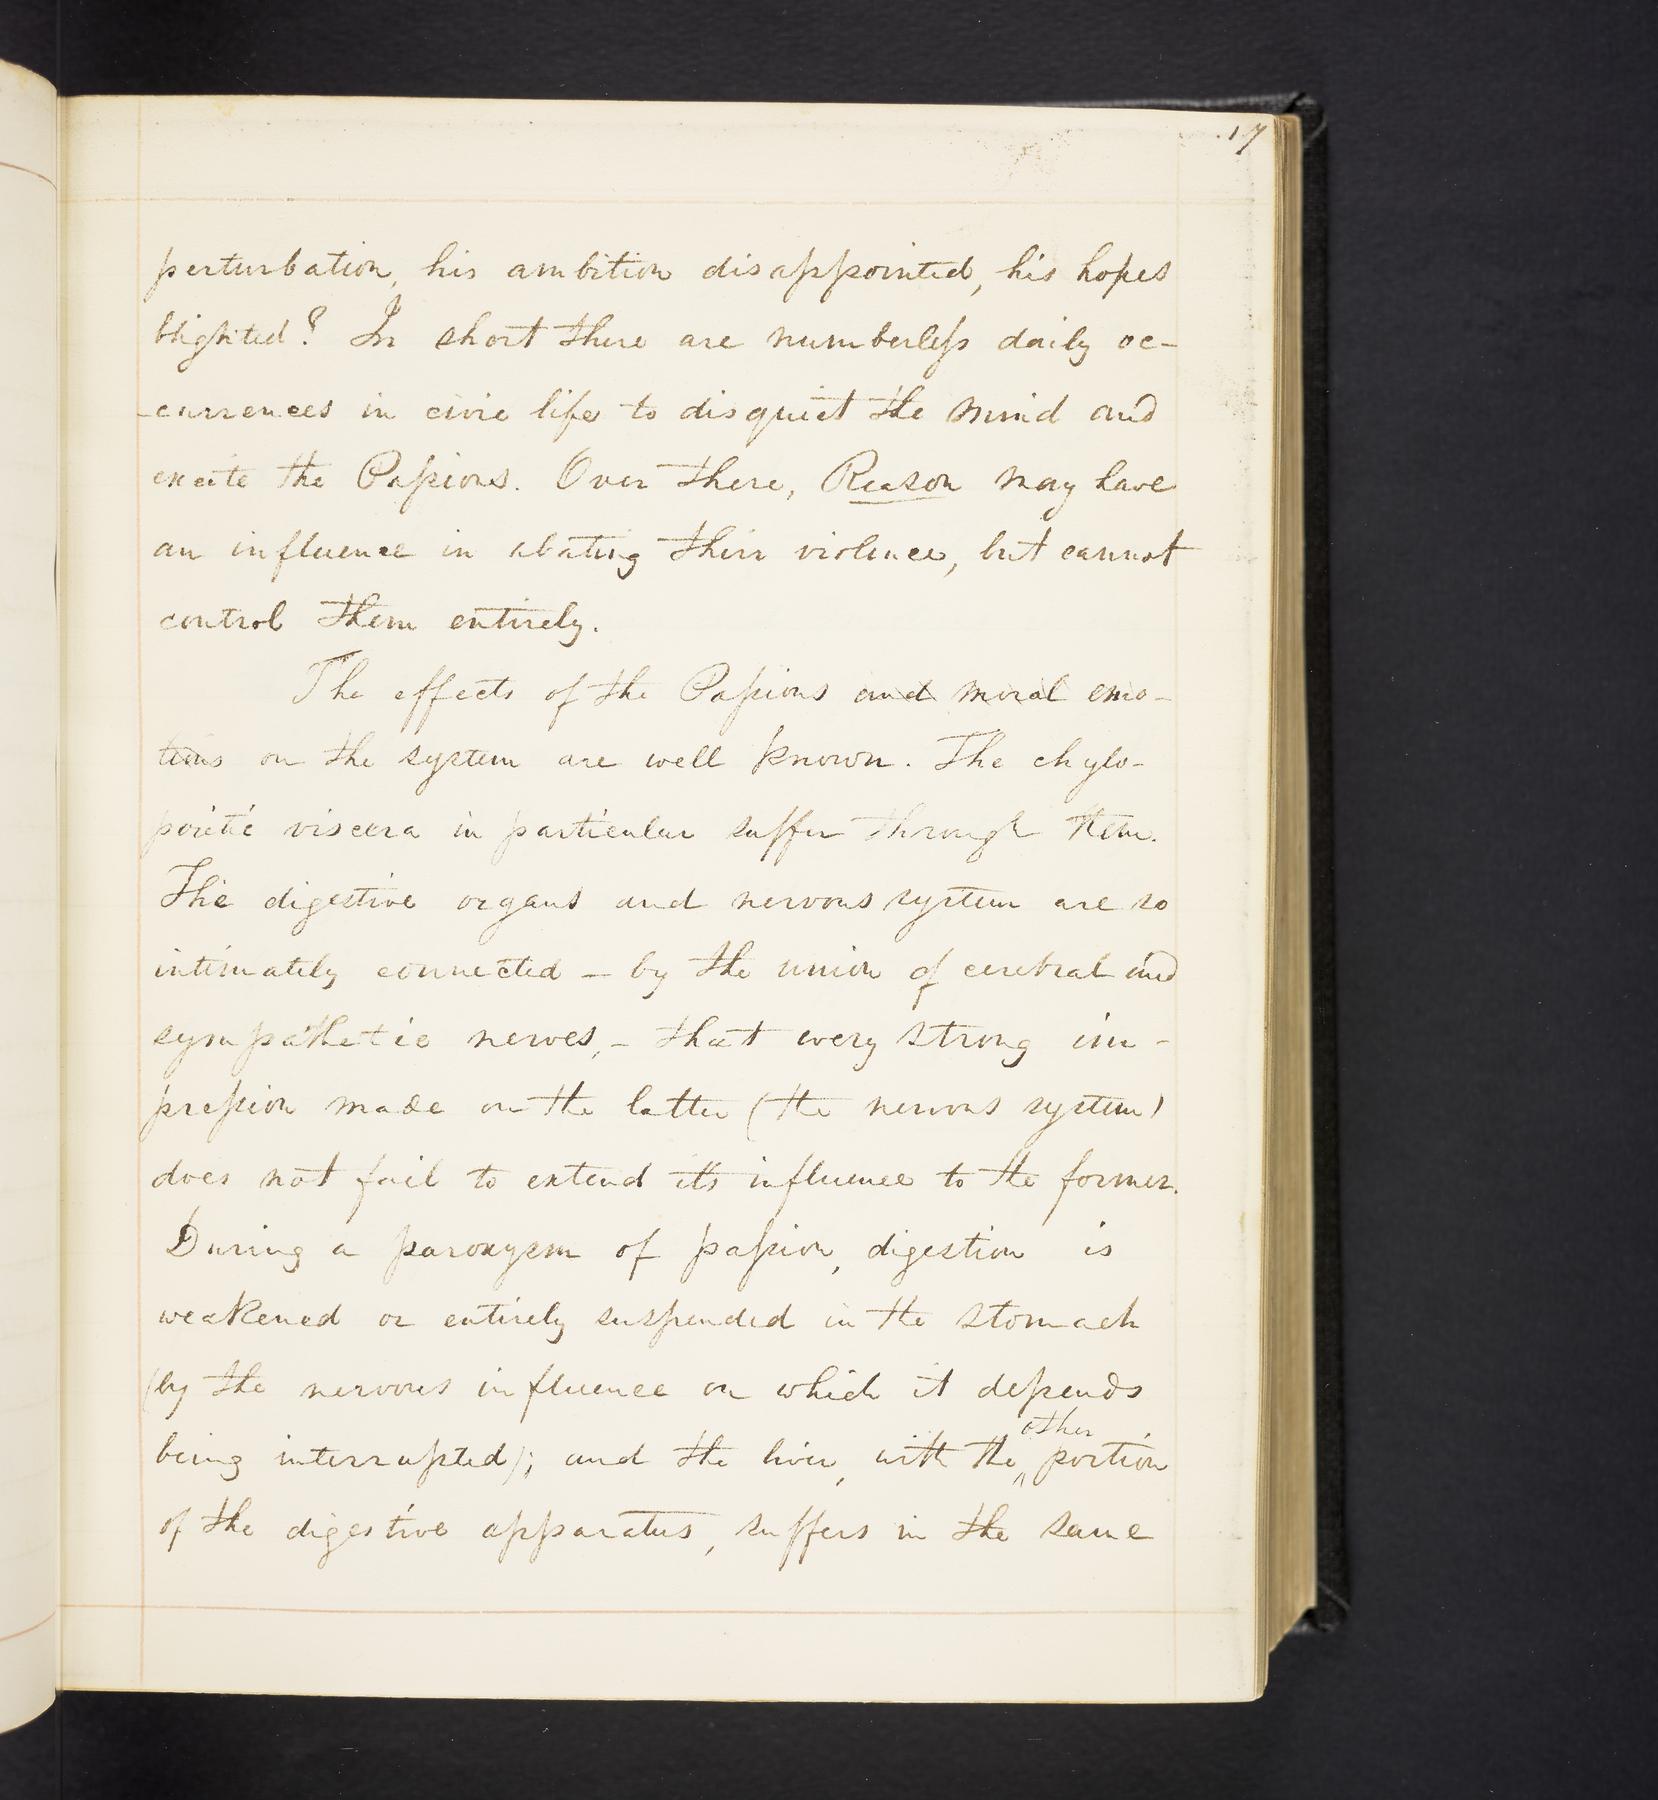 17
perturbation, his ambition disappointed, his hopes
blighted? In short there are numberless daily oc-
-currences in civic life to disquiet the mind and
excite the Passions. Over these, Reason may have
an influence in abating their violence, but cannot
control them entirely.
The effects of the Passions and moral emo-
tions on the system are well known. The chylo-
poietic viscera in particular suffer through them.
The digestive organs and nervous system are so
intimately connected - by the union of cerebral and
sympathetic nerves, - that every strong im-
pression made on the latter (the nervous system)
does not fail to extend its influence to the former.
During a paroxysm of passion, digestion is
weakened or entirely suspended in the stomach
(by the nervous influence on which it depends
being interrupted); and the liver, with the other portion
of the digestive apparatus, suffers in the same